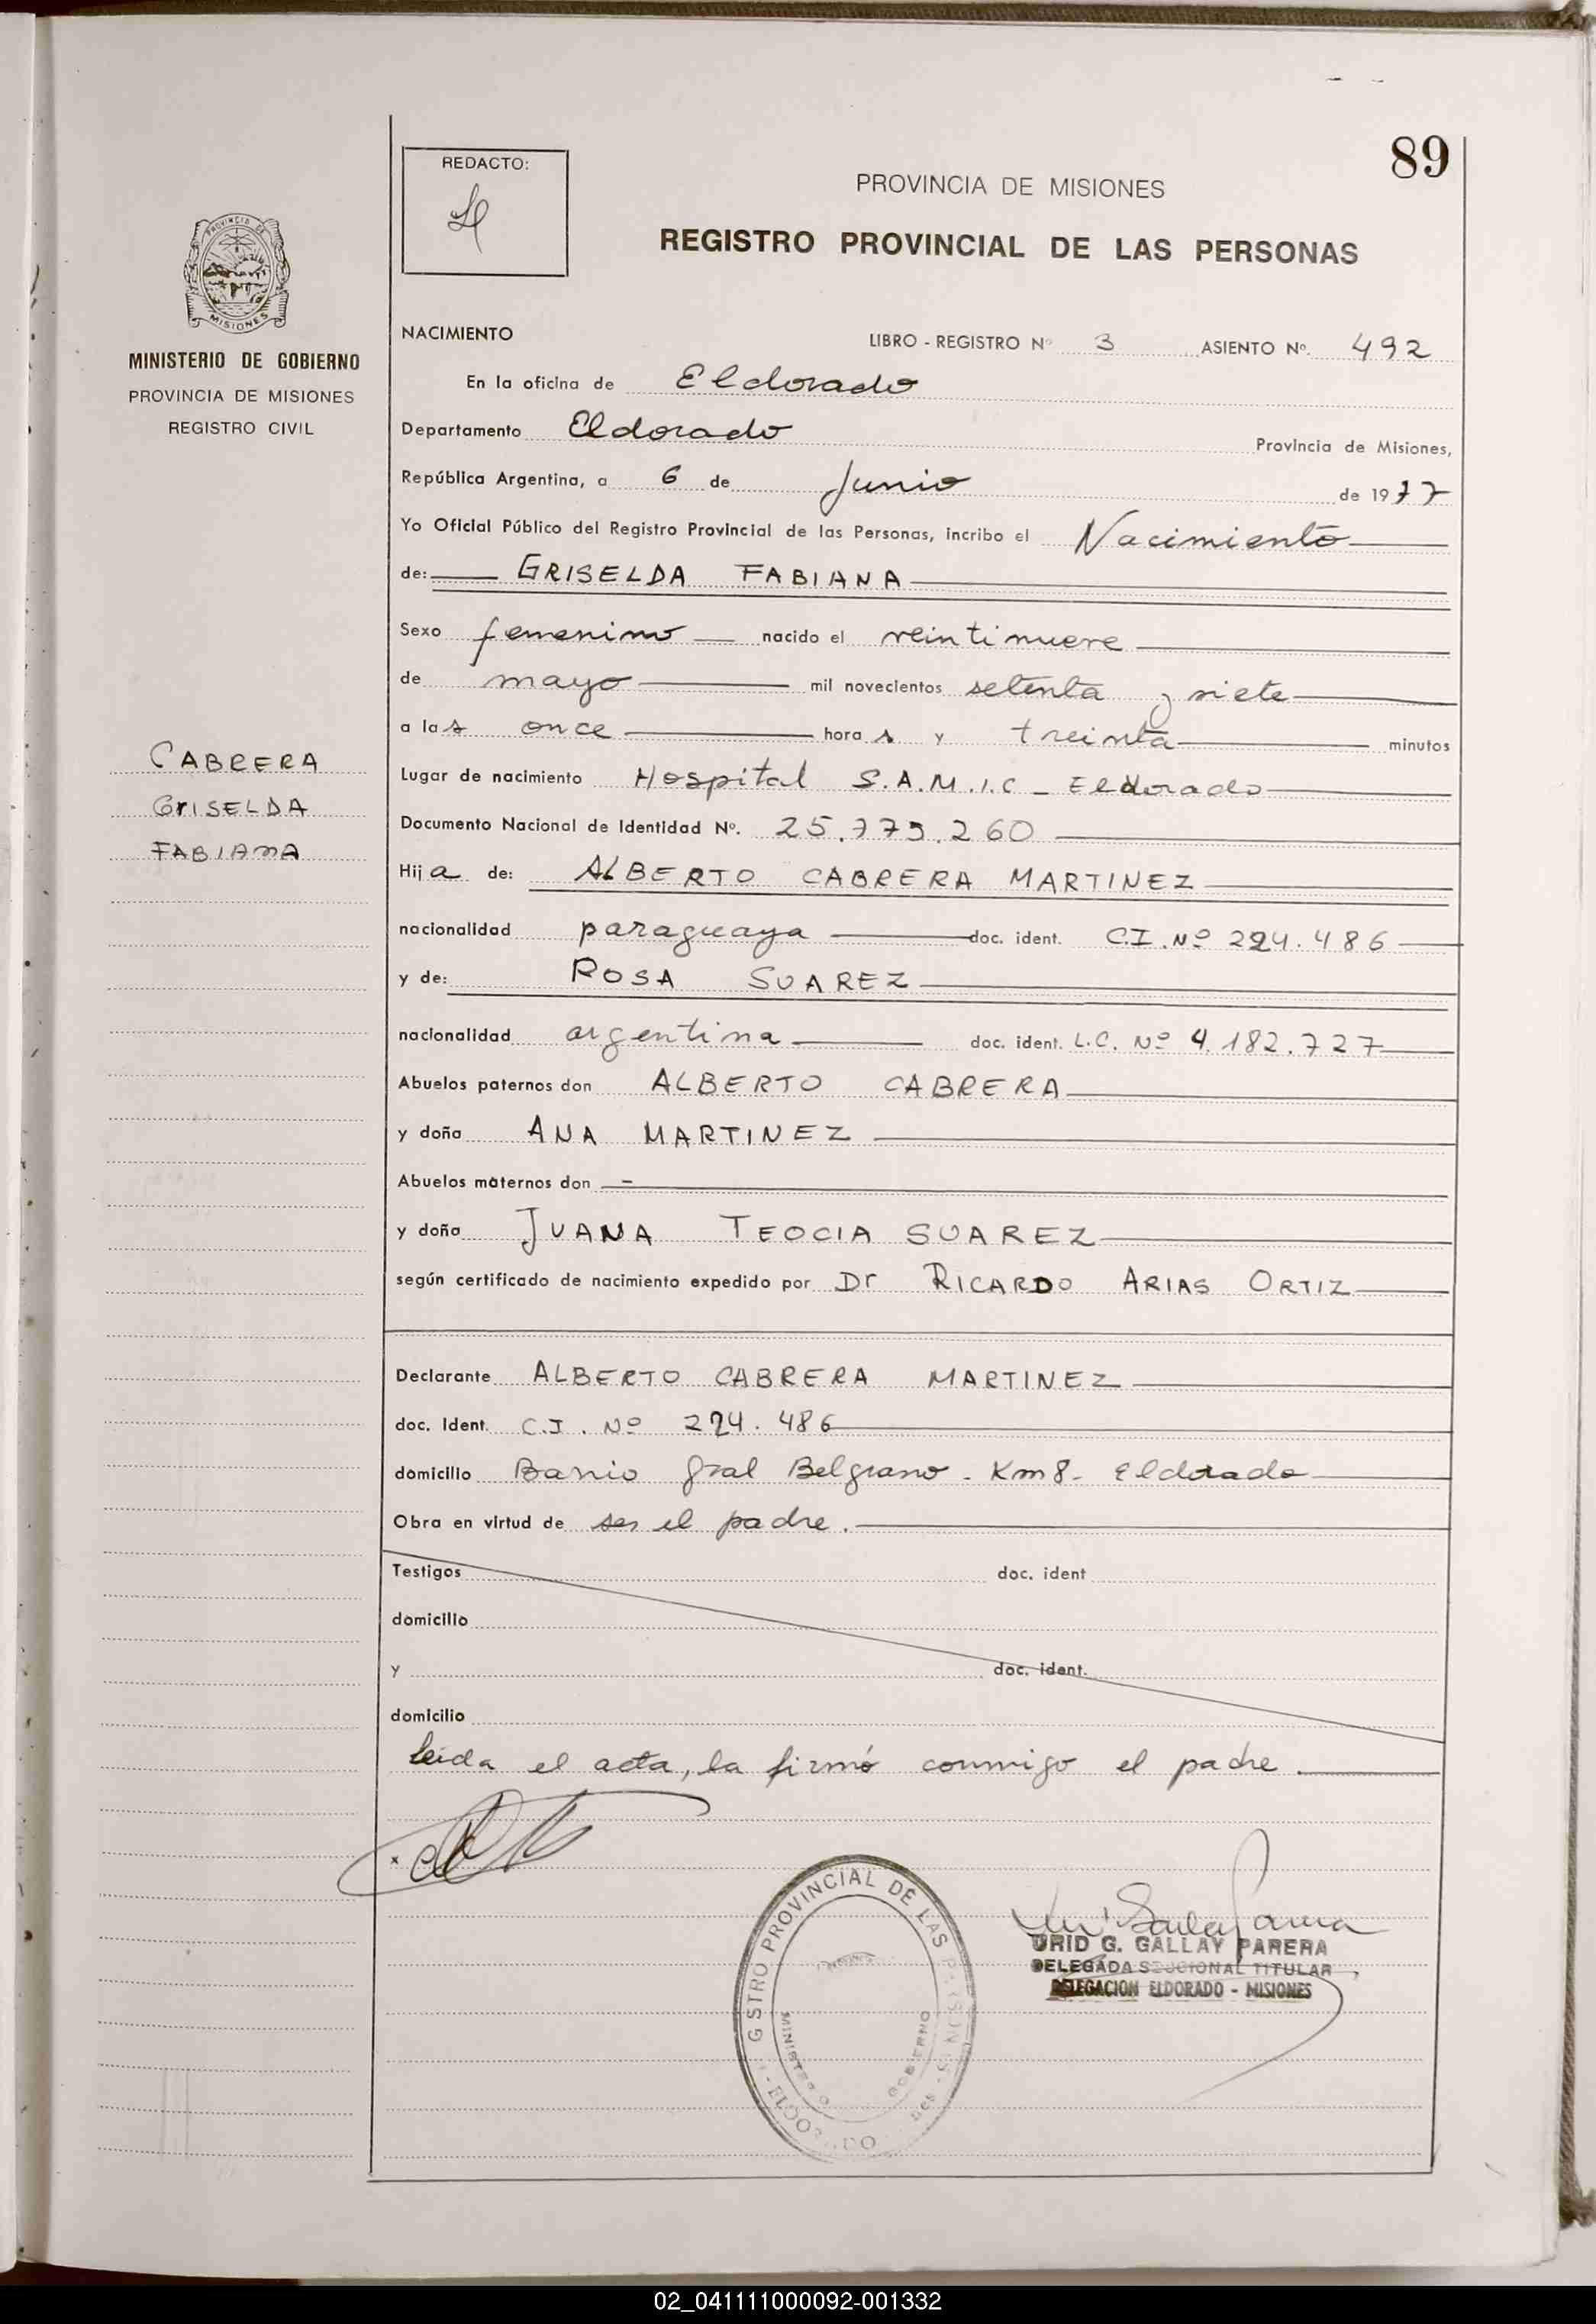 89
REDACTO:
PROVINCIA DE MISIONES
REGISTRO PROVINCIAL DE LAS PERSONAS
PROVINCIA DE
MISIONES
MINISTERIO DE GOBIERNO
PROVINCIA DE MISIONES
REGISTRO CIVIL
CABRERA
GrISELDA
FABIANA
NACIMIENTO LIBRO - REGISTRO Nº 3 ASIENTO Nº. 492
En la oficina de Eldorado
Departamento Eldorado Provincia de Misiones,
República Argentina, a 6 de Junio de 1977
Yo Oficial Público del Registro Provincial de las Personas, incribo el Nacimiento
de: GRISELDA FABIANA
Sexo femenino nacido el veintinueve
de mayo mil novecientos setenta y siete
a las once horas y treinta minutos
Lugar de nacimiento Hospital S.A.M.I.C - Eldorado
Documento Nacional de Identidad Nº. 25.779.260
Hija de: ALBERTO CABRERA MARTINEZ
nacionalidad paraguaya doc. ident. C.I. Nº 224.486
y de: ROSA SUAREZ
nacionalidad argentina doc. ident. L.C. Nº 4.182.727
Abuelos paternos don ALBERTO CABRERA
y doña ANA MARTINEZ
Abuelos maternos don -
y doña JUANA TEOCIA SUAREZ
según certificado de nacimiento expedido por Dr RICARDO ARIAS ORTIZ
Declarante ALBERTO CABRERA MARTINEZ
doc. Ident. C.I. Nº 224.486
domicilio Barrio Gral Belgrano - Km 8 - Eldorado
Obra en virtud de ser el padre.
Testigos doc. ident
domicilio
y doc. ident.
domicilio
leída el acta, la firmó conmigo el padre.
GSTRO PROVINCIAL DE LAS
MINISTERIO GOBIERNO
URID G. GALLAY PARERA
DELEGADA SECCIONAL TITULAR
DELEGACION ELDORADO - MISIONES
02_041111000092-001332